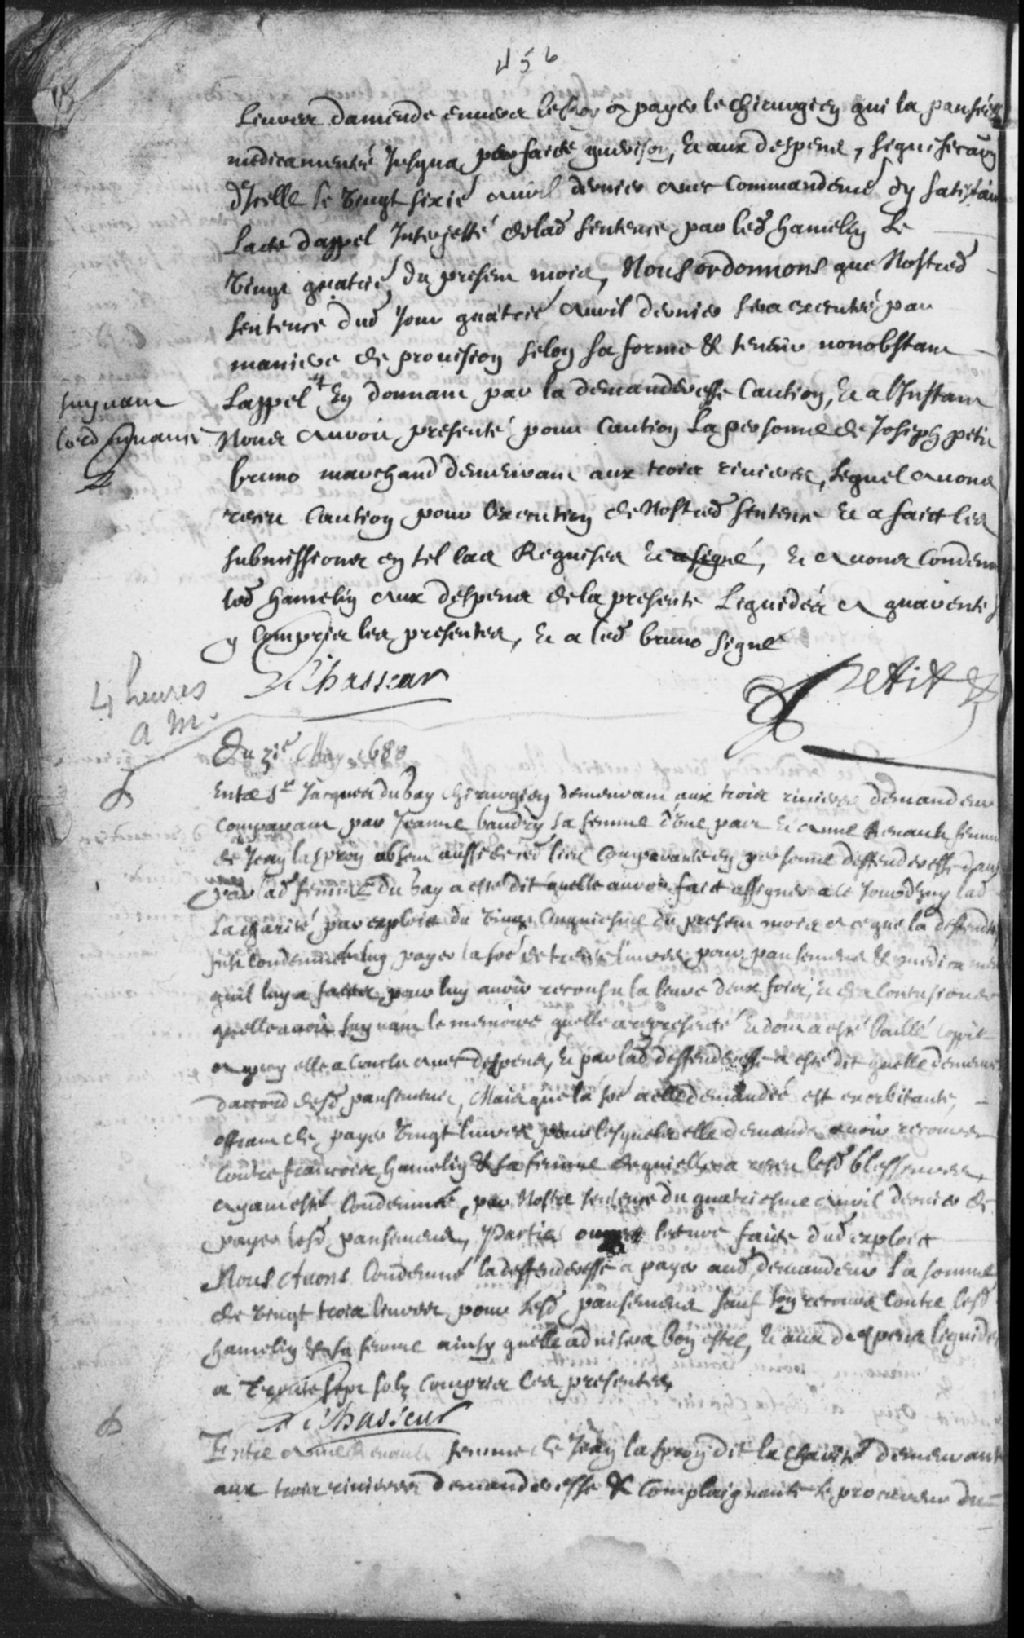 456
Livres damende envers le Roy a payer le chirurgien qui la pansée
medicamenté Jusqua parfaite guerison, et aux despens, signification
dIcelle le vingt sixie avril dernier avec commandemt dy satisfaire
Lacte dappel Interjetté de lad sentence par led hamelin le
vingt quatrie du present mois, Nous ordonnons que Nostred
sentence dud Jour quatrie avril dernier sera executée par
maniere de provision selon sa forme & teneur nonobstant
Lappel En donnant par la demanderesse Caution, et a lInstant
suyvant
lord
Nous avoir presenté pour Caution La personne de Joseph petit
bruno marchand demeurant aux trois rivieres, Lequel avons
receu Caution pour lexecution de Nostred sentence et a faict les
submissions en tel cas Requises et a signé, et avons Condemné
led hamelin aux despens de la presente Liquidés a quarente s
y Compris les presentes, et a led bruno signé
Petit
4 heures
a m.
Du 31e May 1688
Entre Sr Jacques dubay chirurgien demeurant aux trois rivieres demandeur
Comparant par Jeanne baudry sa femme dUne part et anne Renault femme
de Jean laspron absent aussi de ce lieu Comparante en personne deffenderesse dautre
par lad femme du bay a esté dit quelle auroit fait assigner a ce Jourdhuy lad
La charité par exploit du vingt Cinquiesme du present mois a ce que la deffenderesse
soit condemnée luy payer la soe de trente livres pour pansements & medicaments
quil luy a faits pour luy avoir recousu la levre deux fois, et des contusions
quelle avoit suyvant le memoire quelle a representé et dont a esté baillé copie
a quoy elle a conclu avec despens, et par lad deffenderesse a esté dit quelle demeure
daccord desd pansements, Mais que la soe a elle demandée est exorbitante,
offrant de payer vingt livres pour lesquels elle demande avoir recours
Contre francois hamelin & sa femme desquels elle a receu lesd blessures
ayant esté Condemné par Nostre sentence du quatriesme avril dernier de
payer lesd pansements, Parties ouyes lecture faite dud exploit
Nous Avons Condemné la deffenderesse a payer aud demandeur la somme
de vingt trois livres pour lesd pansemens sauf son recours Contre lesd
hamelin & sa femme ainsy quelle advisera bon estre, et aux despens liquidés
a trente sept solz compris les presentes
Entre anne Renault femme de Jean laspron dit la charité demeurante
aux trois rivieres demanderesse & Complaignante le procureur du